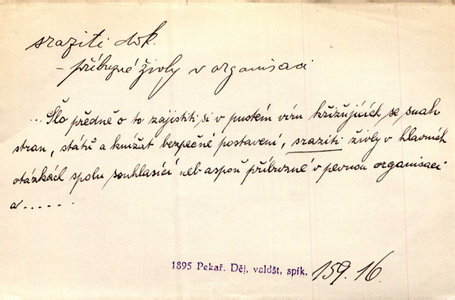 sraziti dok.
- příbuzné živly v organisaci
...Šlo předně o to zajistiti si v pustém víru křižujících se snah
stran, států a knížat bezpečné postavení, sraziti živly v hlavních
otázkách spolu souhlasící neb aspoň příbuzné v pevnou organisaci
a......
1895 Pekař. Děj. valdšt. spik. 159.16.